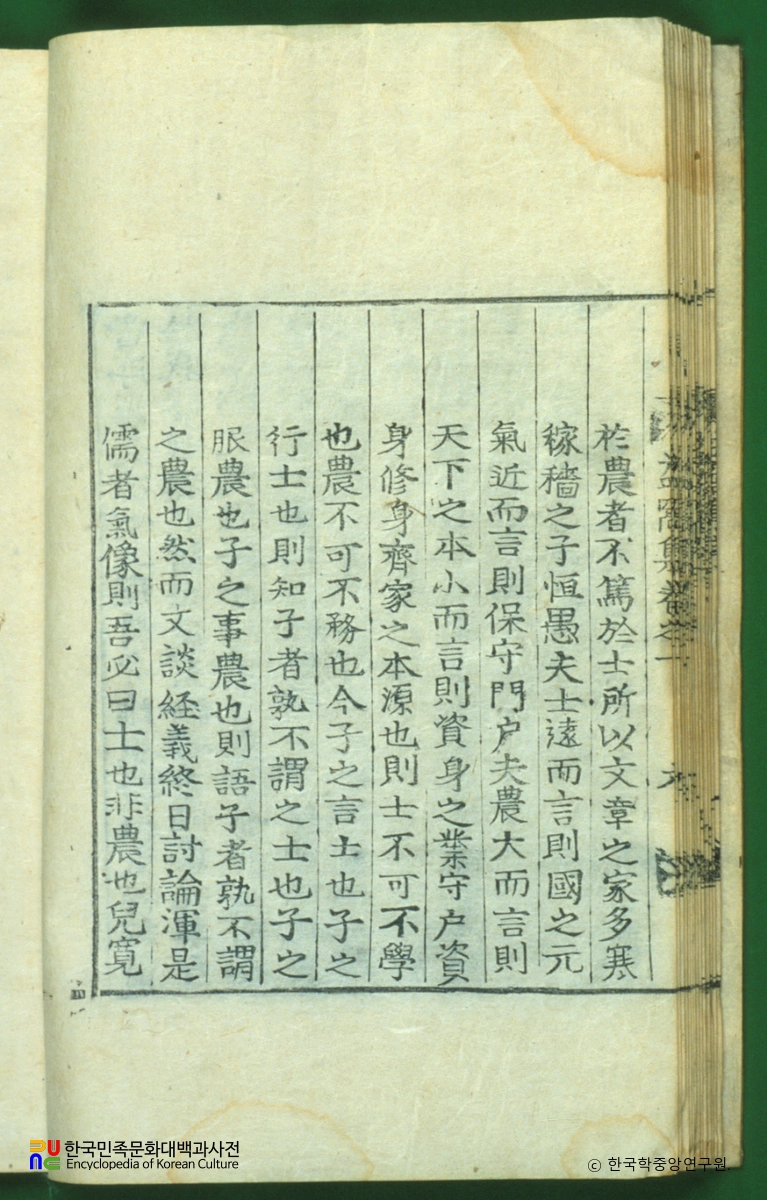 於農者不篤於士所以文章之家多寒
稼穡之子恒愚夫士遠而言則國之元
氣近而言則保守門户夫農大而言則
天下之本小而言則資身之業守户資
身修身齊家之本源也則士不可不學
也農不可不務也今子之言士也子之
行士也則知子者孰不謂之士也子之
服農也子之事農也則語子者孰不謂
之農也然而文談経義終日討論渾是
儒者氣像則吾必曰士也非農也兒寬
한국민족문화대백과사전
Encyclopedia of Korean Culture
ⓒ 한국학중앙연구원